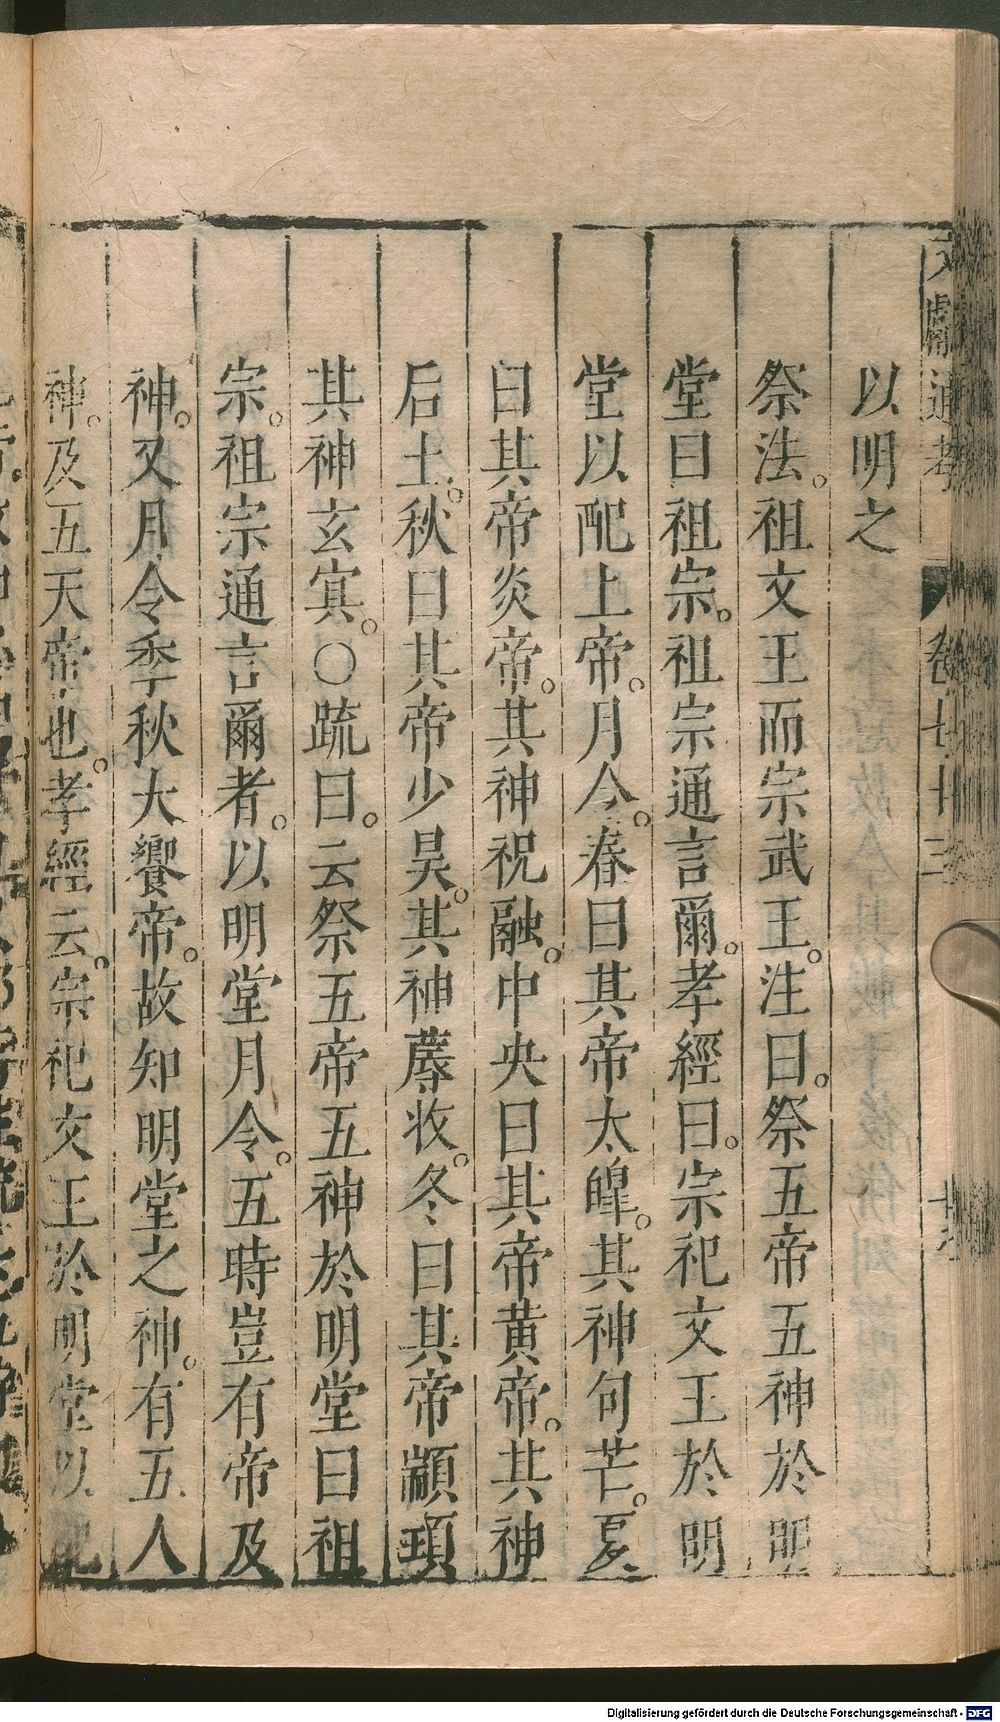 文獻通考 卷七十三
以明之
祭法。祖文王而宗武王。注曰。祭五帝五神於明
堂曰祖宗。祖宗通言爾。孝經曰。宗祀文王於明
堂以配上帝。月令。春曰其帝太皥。其神句芒。夏
曰其帝炎帝。其神祝融。中央曰其帝黄帝。其神
后土。秋曰其帝少昊。其神蓐收。冬曰其帝顓頊
其神玄冥。〇疏曰。云祭五帝五神於明堂曰祖
宗。祖宗通言爾者。以明堂月令。五時豈有帝及
神。又月令季秋大饗帝。故知明堂之神。有五人
神。及五天帝也。孝經云。宗祀文王於明堂以配
Digitalisierung gefördert durch die Deutsche Forschungsgemeinschaft - DFG